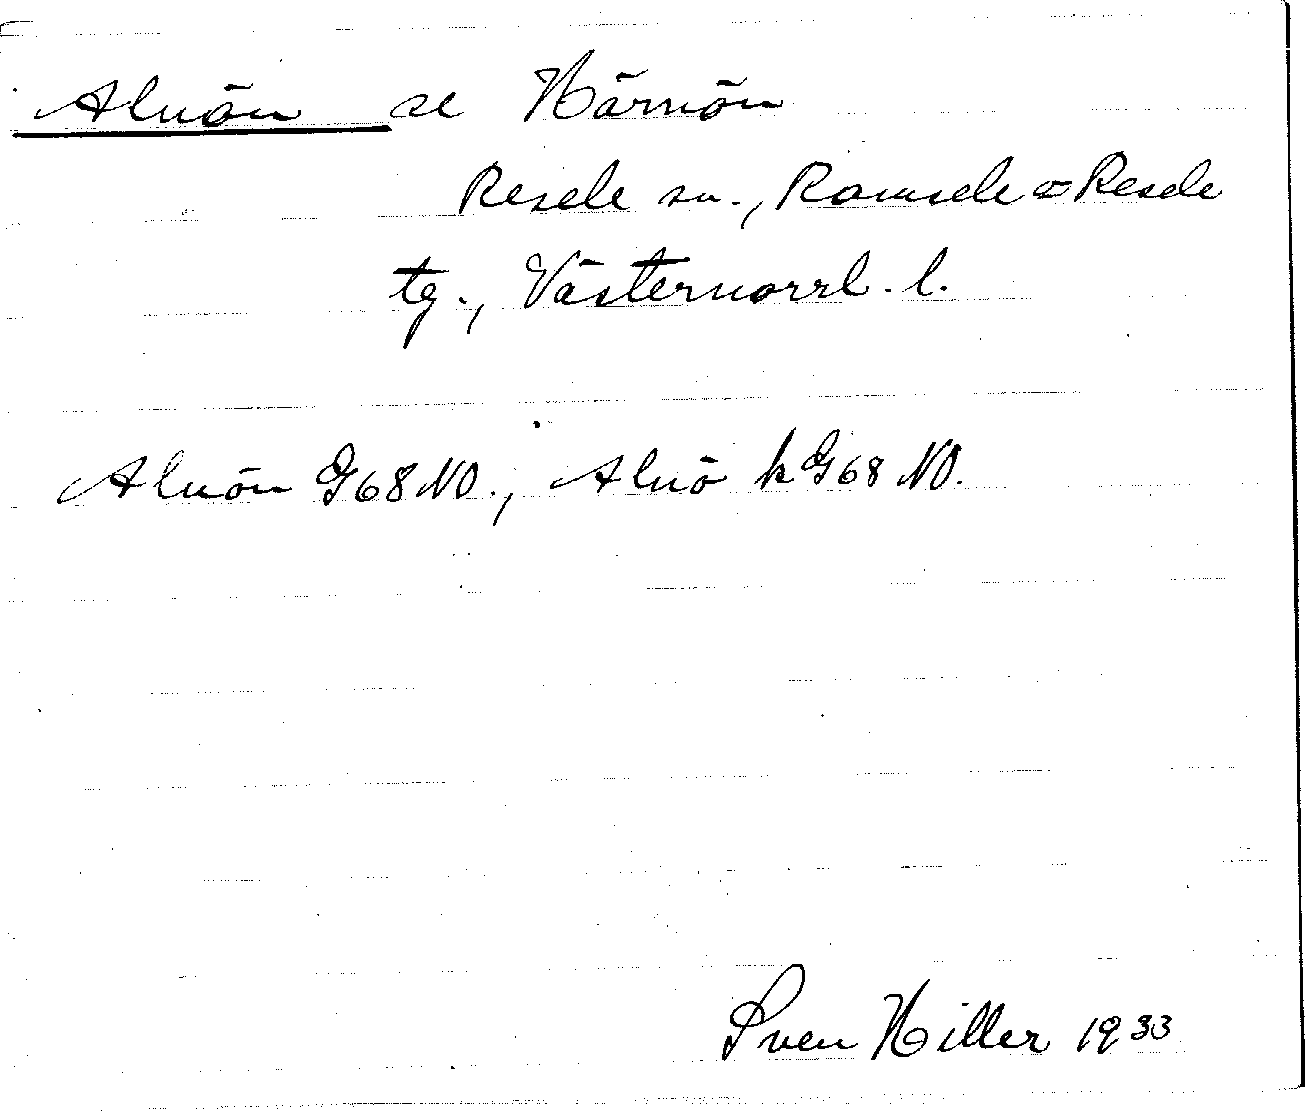 Alnön se Härnön
Resele sn., Ramsele o Resele
tg., Västernorrl. l.
Alnön G68NO., Alnö k G68 NO.
Sven Hiller 1933